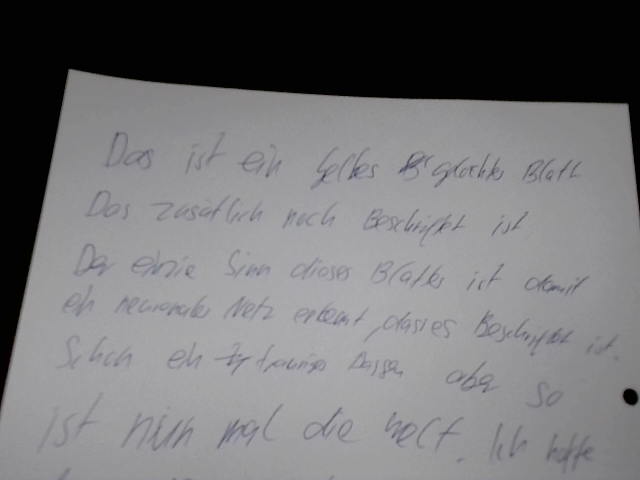 Das ist ein gelbes gelochtes Blatt
Das zusätlich noch Beschriftet ist
Der einzie Sinn dieses Blattes ist damit
ein neuronales Netz erkennt, das es Beschriftet ist.
Schon ein trauriges Dassein aber so
ist nun mal die welt. Ich hoffe